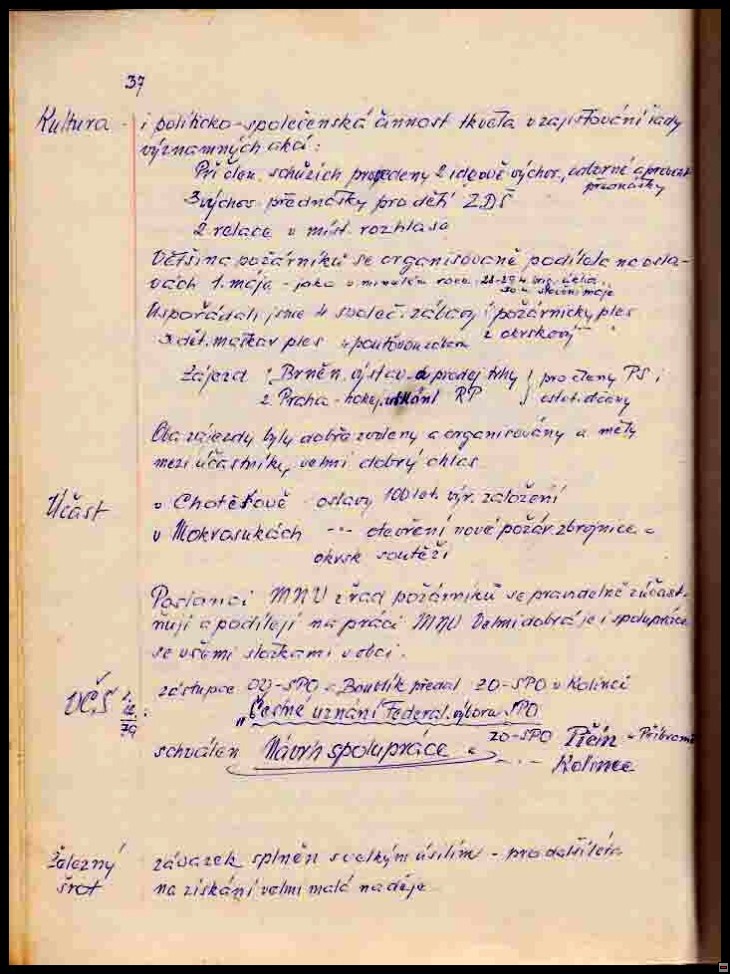 37
Kultura - i politicko-společenská činnost tkvěla v zajišťování řady
významných akcí:
Při člen. schůzích provedeny 2 ideově výchov., odborné a provoz.
přednášky
3 výchov. přednášky pro děti ZDŠ
2 relace v míst. rozhlase
Většina požárníků se organisovaně podílela na osla-
vách 1. máje - jako v minulém roce
stavění máje
Uspořádali jsme 4 společ. zábavy i požárnický ples
dět. maškar. ples s pouťovou zábavou a okrskový
Zájezd 1. Brněn. výstav. a prodej. trhy pro členy PS i
2. Praha - hokej. utkání RP ostat. občany
Oba zájezdy byly dobře vedeny a organisovány a měly
mezi účastníky velmi dobrý ohlas
Účast v Chotěšově - oslavy 100 let. výr. založení
v Mokrosukách -"- otevření nové požár. zbrojnice -
okrsk soutěží
Poslanci MNV z řad požárníků se pravidelně zúčast-
ňují a podílejí na práci MNV Velmi dobrá je i spolupráce
se všemi složkami v obci.
VČS 1. 12. 79: zástupce OV-SPO s. Boublík předal ZO-SPO v Kolinci
"Čestné uznání Federál. výboru SPO
schválen Návrh spolupráce ZO-SPO Třěn u Příbrami
-"- Kolinec
Železný závazek splněn s velkým úsilím - pro další léta
šrot na získání velmi malá naděje